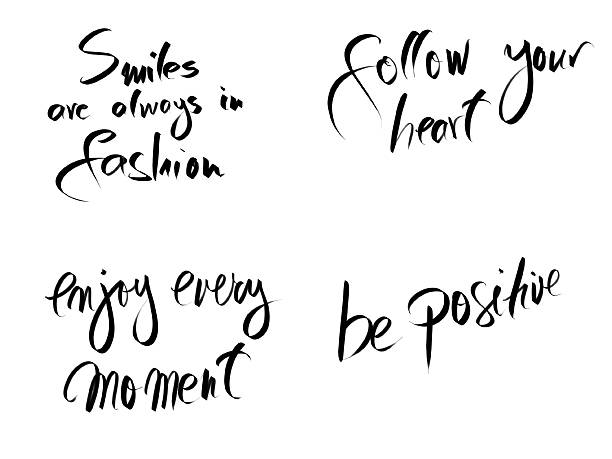 Smiles
are always in
fashion
follow your
heart
enjoy every
moment
be positive